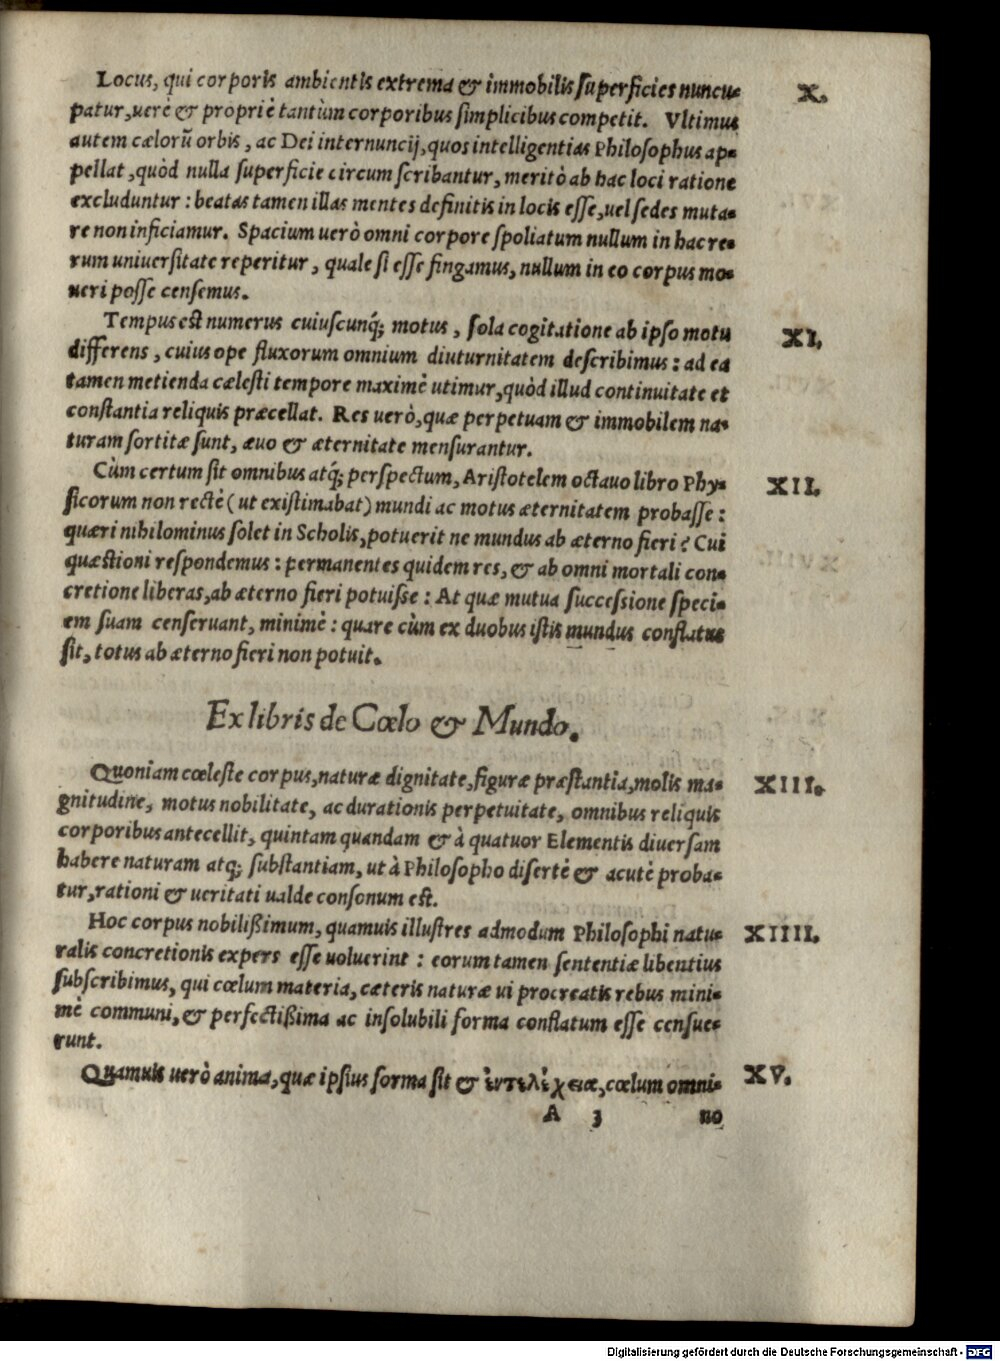 Locus, qui corporis ambientis extrema & immobilis superficies nuncu- X.
patur, uerè & propriè tantùm corporibus simplicibus competit. Vltimus
autem cælorũ orbis, ac Dei internuncij, quos intelligentias Philosophus ap-
pellat, quòd nulla superficie circumscribantur, meritò ab hac loci ratione
excluduntur: beatas tamen illas mentes definitis in locis esse, uel sedes muta-
re non inficiamur. Spacium uerò omni corpore spoliatum nullum in hac re-
rum uniuersitate reperitur, quale si esse fingamus, nullum in eo corpus mo-
ueri posse censemus.
Tempus est numerus cuiuscunq; motus, sola cogitatione ab ipso motu XI.
differens, cuius ope fluxorum omnium diuturnitatem describimus: ad ea
tamen metienda cælesti tempore maximè utimur, quòd illud continuitate et
constantia reliquis præcellat. Res uerò, quæ perpetuam & immobilem na-
turam sortitæ sunt, æuo & æternitate mensurantur.
Cùm certum sit omnibus atq; perspectum, Aristotelem octauo libro Phy- XII.
sicorum non rectè (ut existimabat) mundi ac motus æternitatem probasse:
quæri nihilominus solet in Scholis, potuerit ne mundus ab æterno fieri? Cui
quæstioni respondemus: permanentes quidem res, & ab omni mortali con-
cretione liberas, ab æterno fieri potuisse: At quæ mutua successione speci-
em suam conseruant, minimè: quare cùm ex duobus istis mundus conflatus
sit, totus ab æterno fieri non potuit.
Ex libris de Cœlo & Mundo.
Quoniam cœleste corpus, naturæ dignitate, figuræ præstantia, molis ma- XIII.
gnitudine, motus nobilitate, ac durationis perpetuitate, omnibus reliquis
corporibus antecellit, quintam quandam & à quatuor Elementis diuersam
habere naturam atq; substantiam, ut à Philosopho disertè & acutè proba-
tur, rationi & ueritati ualde consonum est.
Hoc corpus nobilißimum, quamuis illustres admodum Philosophi natu- XIIII.
ralis concretionis expers esse uoluerint: eorum tamen sententiæ libentius
subscribimus, qui cœlum materia, cæteris naturæ ui procreatis rebus mini-
mè communi, & perfectißima ac insolubili forma conflatum esse censue-
runt.
Quamuis uerò anima, quæ ipsius forma sit & ἐντελέχειαe, cœlum omni- XV.
A 3 no
Digitalisierung gefördert durch die Deutsche Forschungsgemeinschaft - DFG